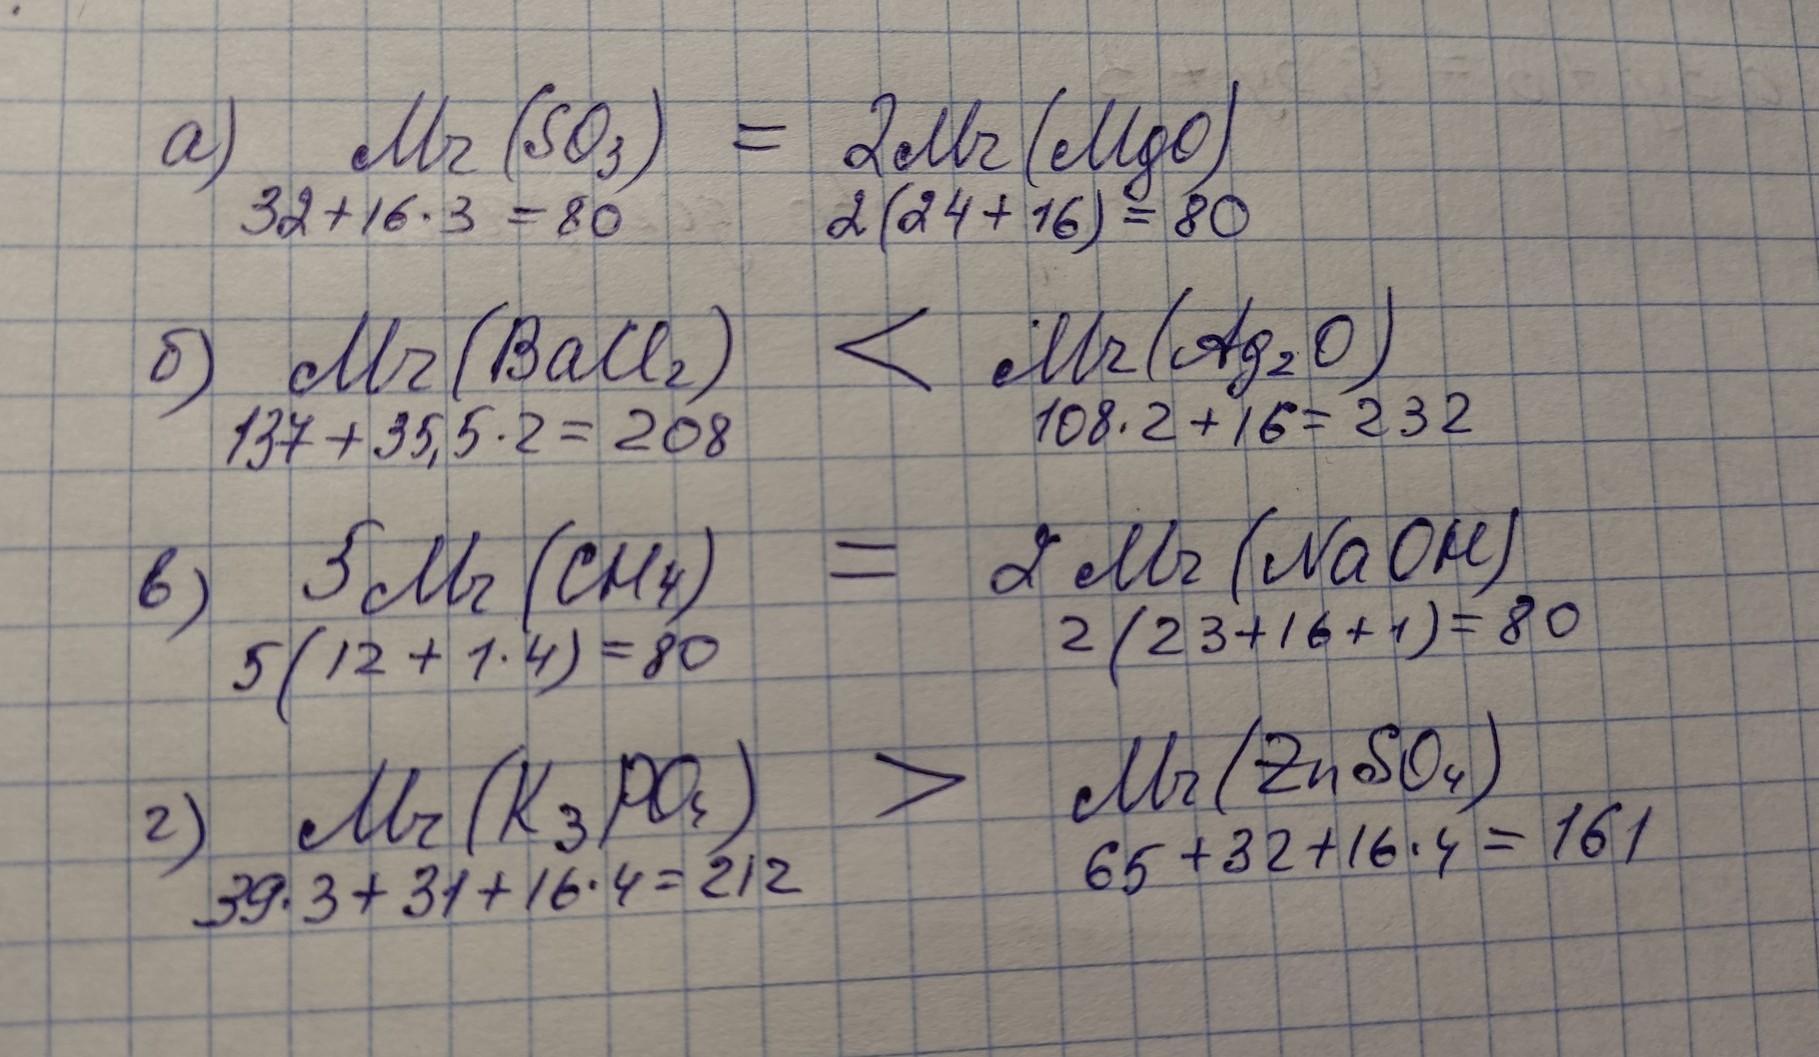 а) Mr (SO₃) = 2Mr (MgO)
32+16·3 = 80 2(24+16) = 80
б) Mr (BaCl₂) < Mr (Ag₂O)
137+35,5·2 = 208 108·2+16 = 232
в) 5Mr (CH₄) = 2Mr (NaOH)
5(12+1·4) = 80 2(23+16+1) = 80
г) Mr (K₃PO₄) > Mr (ZnSO₄)
39·3+31+16·4 = 212 65+32+16·4 = 161